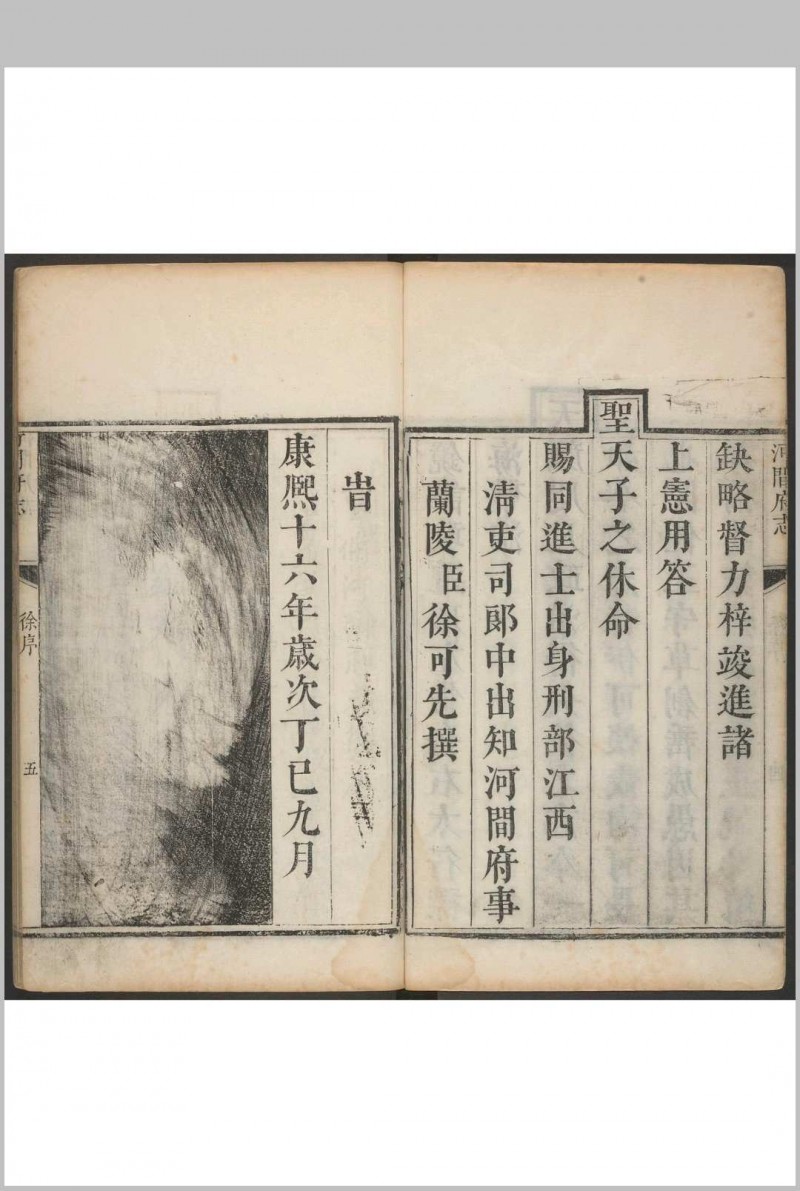 河間府志
缺略督力梓竣進諸
上憲用答
聖天子之休命
賜同進士出身刑部江西
清吏司郎中出知河間府事
蘭陵臣徐可先撰
旹
康熙十六年歲次丁巳九月
徐序
五